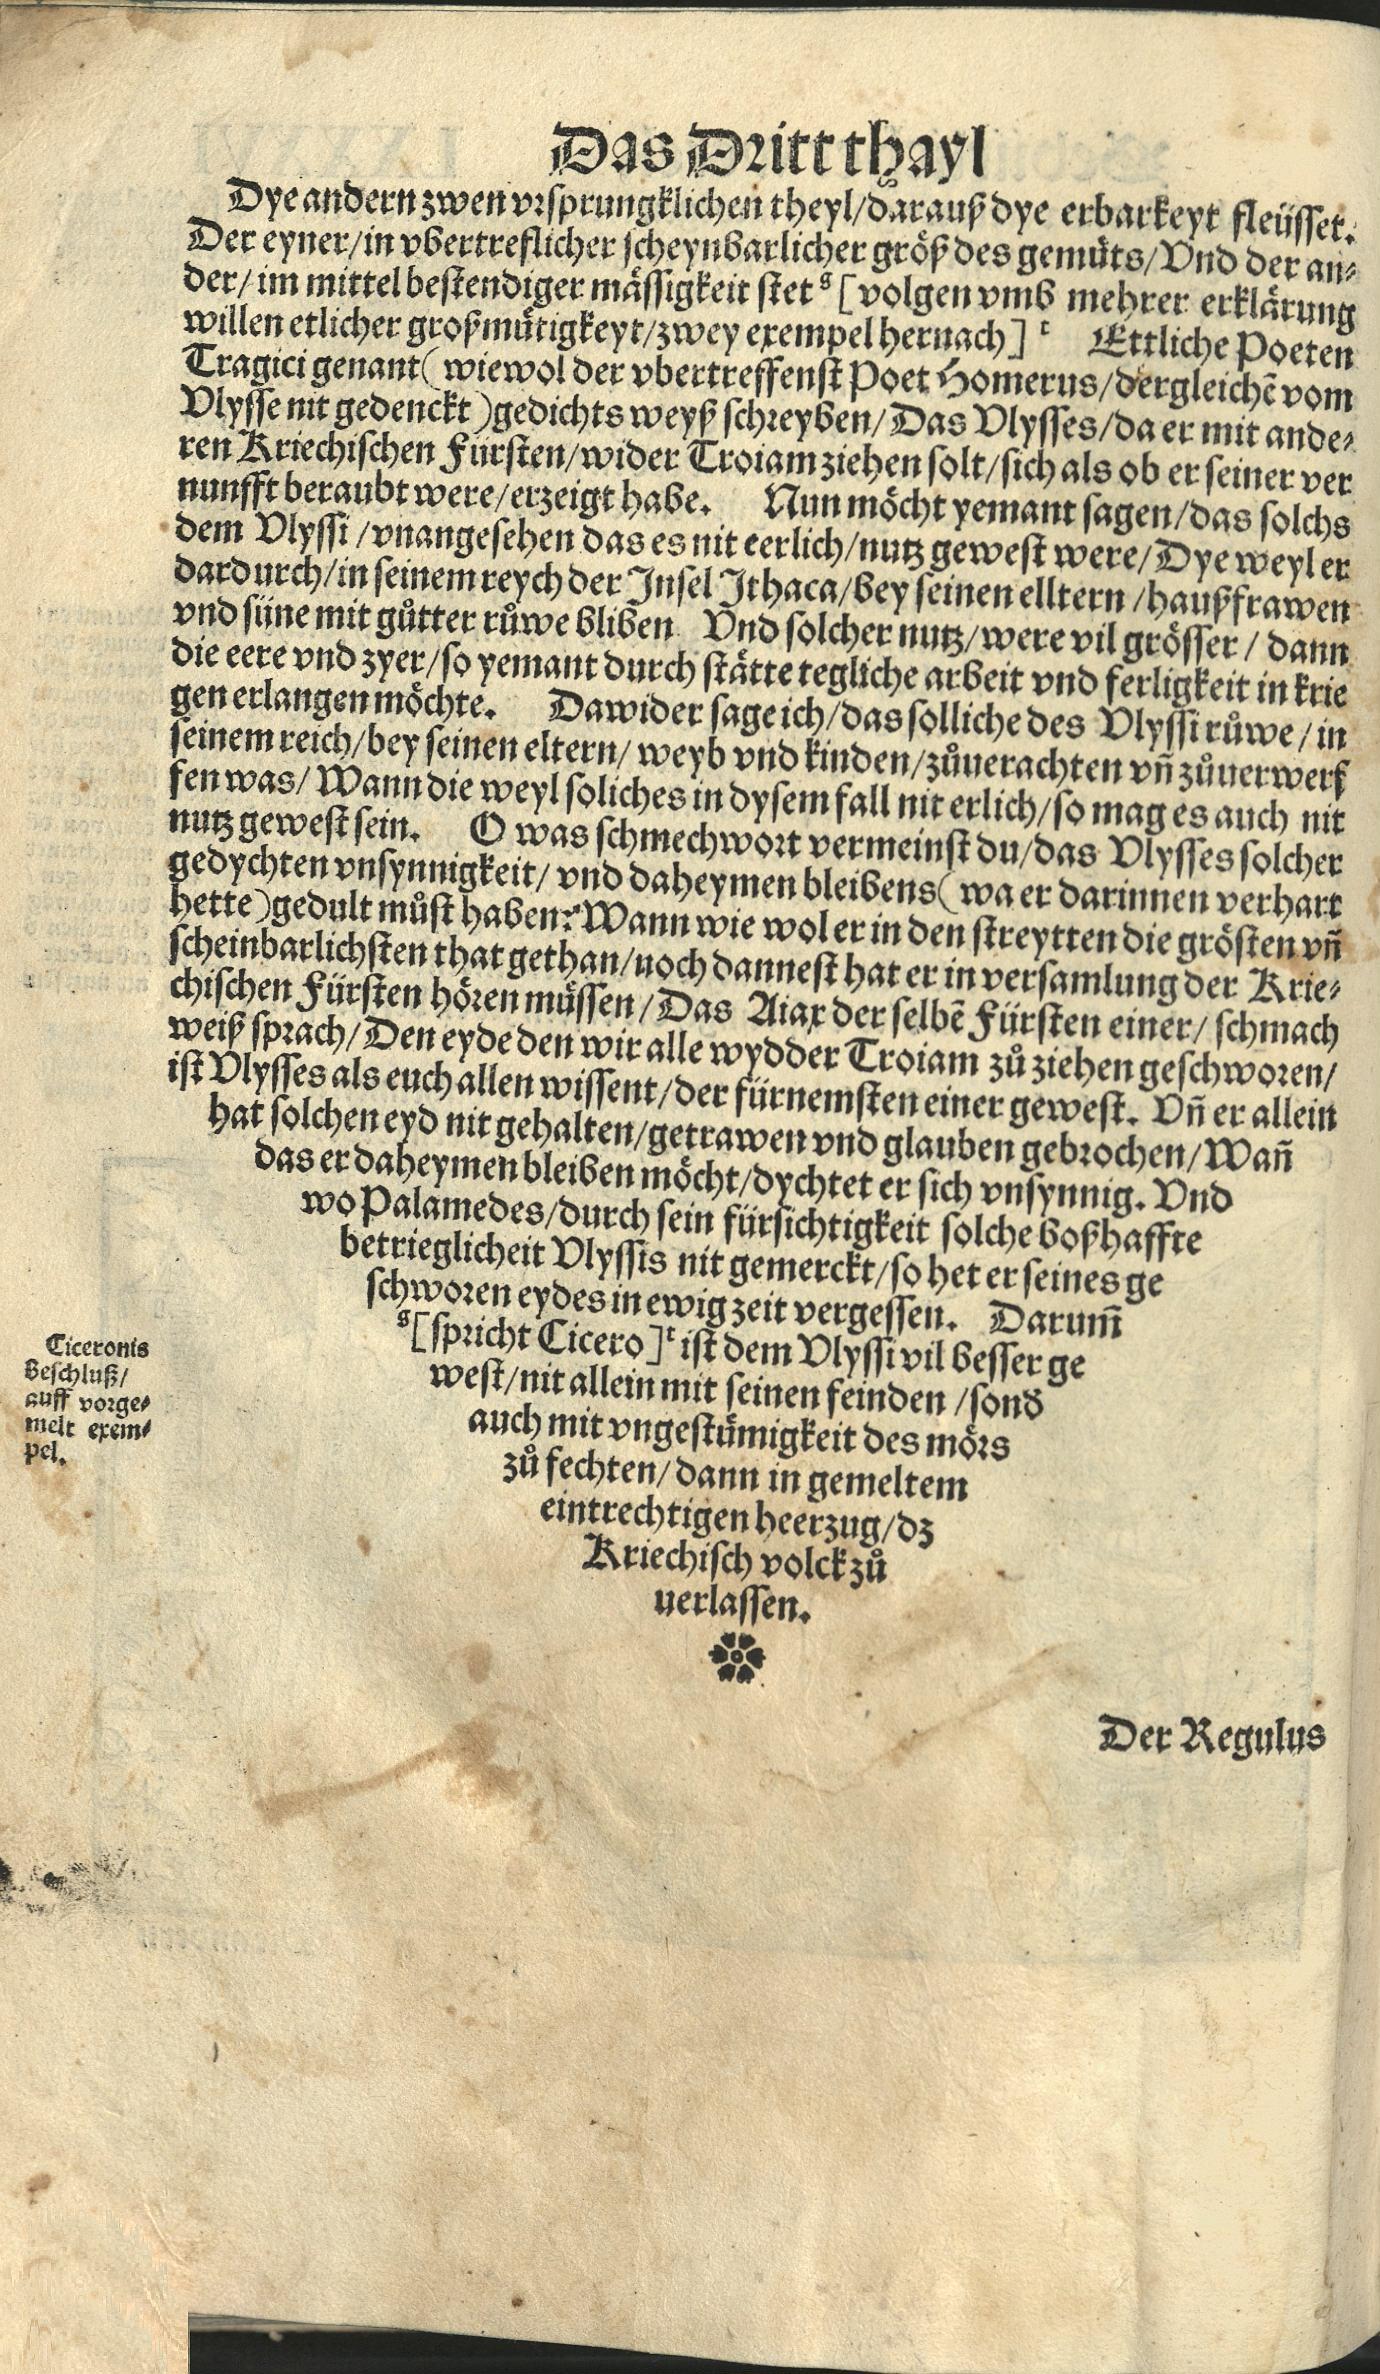 Das Dritt thayl
Dye andern zwen vrsprungklichen theyl/darauß dye erbarkeyt fleüsset.
Der eyner/in vbertreflicher scheynbarlicher größ des gemüts/Vnd der an⸗
der/im mittel bestendiger mässigkeit stet ᵍ[volgen vmb mehrer erklärung
willen etlicher großmütigkeyt/zwey exempel hernach]ᵗ Ettliche Poeten
Tragici genant(wiewol der vbertreffenst Poet Homerus/dergleichē vom
Vlysse nit gedenckt)gedichts weyß schreyben/Das Vlysses/da er mit ande⸗
ren Kriechischen Fürsten/wider Troiam ziehen solt/sich als ob er seiner ver
nunfft beraubt were/erzeigt habe. Nun möcht yemant sagen/das solchs
dem Vlyssi/vnangesehen das es nit eerlich/nutz gewest were/Dye weyl er
dardurch/in seinem reych der Insel Ithaca/bey seinen elltern/haußfrawen
vnd süne mit gůtter růwe bliben Vnd solcher nutz/were vil grösser/dann
die eere vnd zyer/so yemant durch stätte tegliche arbeit vnd ferligkeit in krie
gen erlangen möchte. Dawider sage ich/das solliche des Vlyssi růwe/in
seinem reich/bey seinen eltern/weyb vnd kinden/zůuerachten vñ zůuerwerf
fen was/Wann die weyl soliches in dysem fall nit erlich/so mag es auch nit
nutz gewest sein. O was schmechwort vermeinst du/das Vlysses solcher
gedychten vnsynnigkeit/vnd daheymen bleibens(wa er darinnen verhart
hette)gedult můst haben? Wann wie wol er in den streytten die grösten vñ
scheinbarlichsten that gethan/noch dannest hat er in versamlung der Krie⸗
chischen Fürsten hören müssen/Das Aiax der selbē Fürsten einer/schmach
weiß sprach/Den eyde den wir alle wydder Troiam zů ziehen geschworen/
ist Vlysses als euch allen wissent/der fürnemsten einer gewest. Vñ er allein
hat solchen eyd nit gehalten/getrawen vnd glauben gebrochen/Wañ
das er daheymen bleiben möcht/dychtet er sich vnsynnig. Vnd
wo Palamedes/durch sein fürsichtigkeit solche boßhaffte
betrieglicheit Vlyssis nit gemerckt/so het er seines ge
schworen eydes in ewig zeit vergessen. Darum̄
ᵍ[spricht Cicero]ᵗ ist dem Vlyssi vil besser ge
west/nit allein mit seinen feinden/sond̄
auch mit vngestümigkeit des mörs
zů fechten/dann in gemeltem
eintrechtigen heerzug/dz
Kriechisch volck zů
uerlassen.
Ciceronis
Beschluß/
auff vorge⸗
melt exem⸗
pel.
Der Regulus